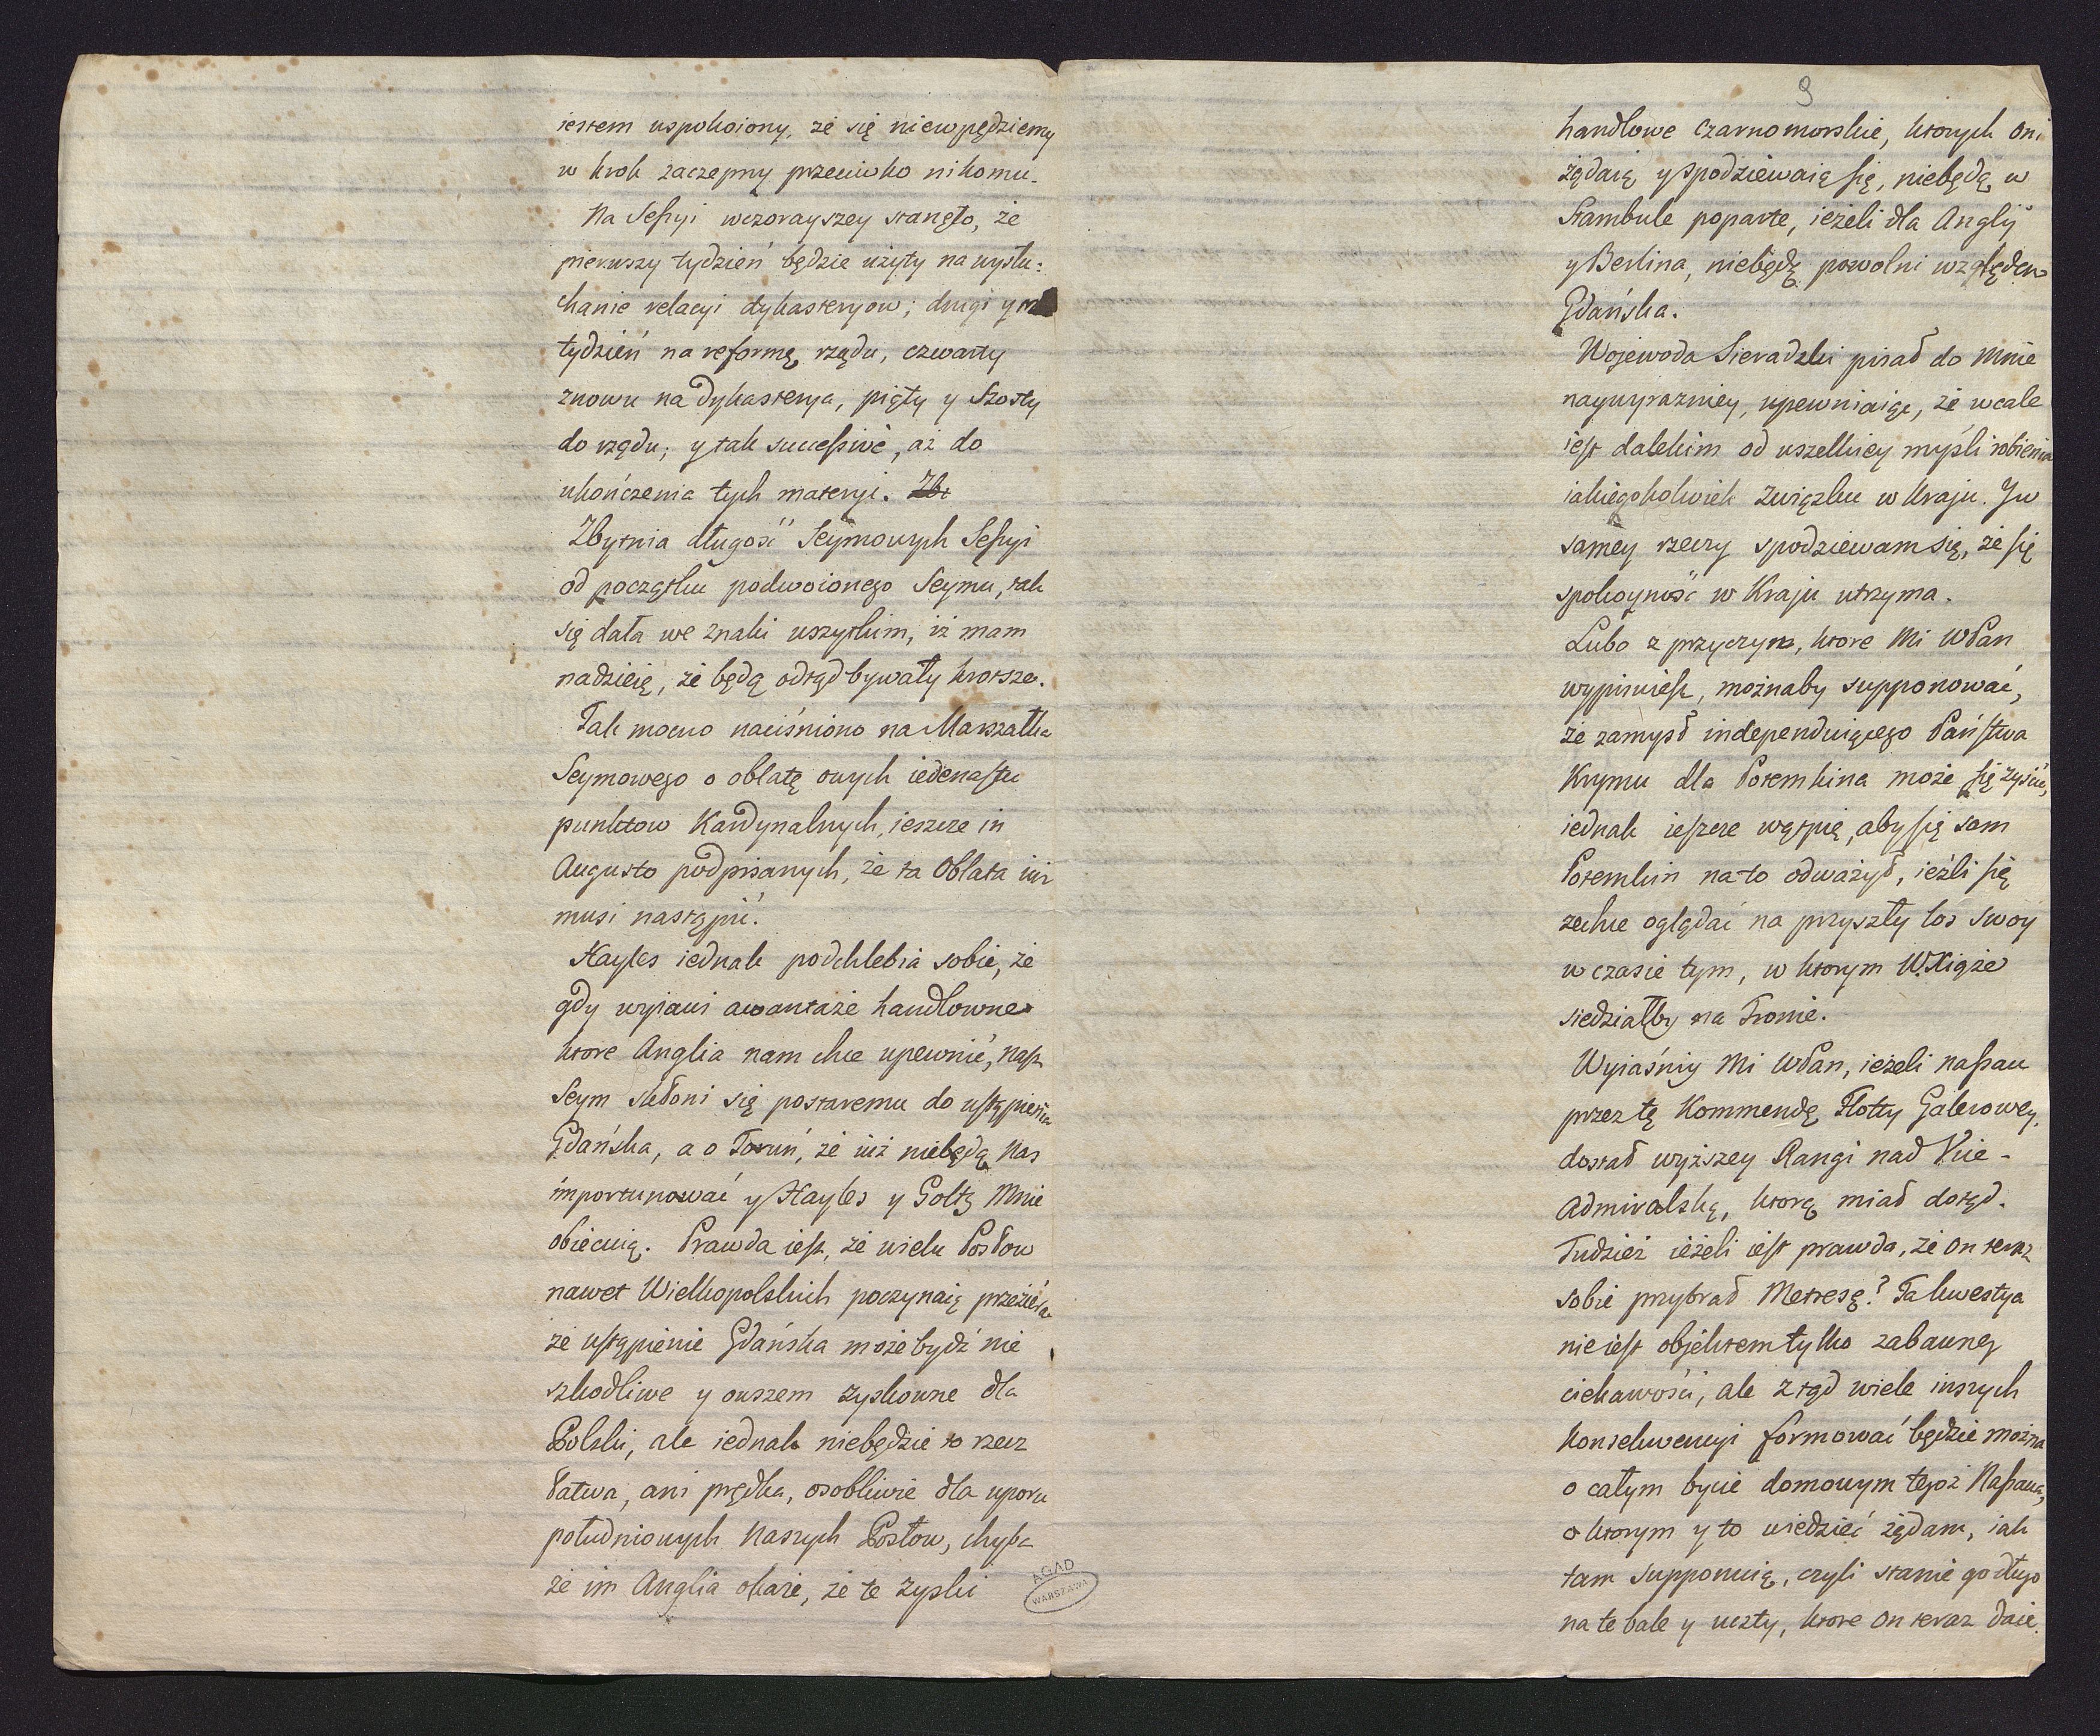 iestem uspokoiony, że się niewpędziemy
w krok zaczepny przeciwko nikomu.
Na Sessyi wczorayszey stanęło, że
pierwszy tydzień będzie użyty na wysłu:
chanie relacyi dykasteryow; drugi y
tydzień na reformę rządu, czwarty
znowu na Dykasterya, piąty y Szosty
do rządu; y tak successivè, aż do
ukończenia tych materyi. Zbt
Zbytnia długość Seymowych Sessyi
od początku podwoionego Seymu, tak
się dała we znaki wszytkim, iż mam
nadzieię, że będą odtąd bywały krotsze.
Tak mocno naciśniono na Marszałka
Seymowego o oblatę owych iedenastu
punktow Kardynalnych, ieszcze in
Augusto podpisanych, że ta Oblata iuż
musi nastąpić.
Hayles iednak podchlebia sobie, że
gdy wyiawi awantaże handlowne
ktore Anglia nam chce upewnić, nasz
Seym skłoni się postaremu do ustąpienia
Gdańska, a o Toruń, że iuż niebędą nas
importunować y Hayles y Goltz Mnie
obiecuią. Prawda iest, że wielu Posłow
nawet Wielkopolskich poczynaią przezierać
że ustąpienie Gdańska może bydź nie
szkodliwe y owszem zyskowne dla
Polski, ale iednak niebędzie to rzecz
łatwa, ani prędka, osobliwie dla uporu
południowych naszych Posłow, chyba
że im Anglia okaże, że te zyski
AGAD
WARSZAWA
9
handlowe czarnomorskie, ktorych oni
żądaią y spodziewaią się, niebędą w
Stambule poparte, ieżeli dla Anglij
y Berlina, niebędą powolni względem
Gdańska.
Wojewoda Sieradzki pisał do mnie
naywyrazniey, upewniaiąc, że wcale
iest dalekim od wszelkiey myśli robienia
iakiegokolwiek związku w kraju. Y w
samey rzeczy spodziewam się, że się
spokoyność w Kraju utrzyma.
Lubo z przyczyn, ktore Mi WPan
wypisuiesz, możnaby supponować,
że zamysł independuiącego Państwa
Krymu dla Potemkina może się ziścić,
iednak ieszcze wątpię, aby się sam
Potemkin na to odważył, ieżli się
zechce oglądać na przyszły los swoy
w czasie tym, w ktorym W. Xiąże
siedziałby na Tronie.
Wyiaśniy Mi WPan, ieżeli Nassau
przez tę Kommendę Flotty Galerowey,
dostał wyższey Rangi nad Vice-
Admiralską, ktorą miał dotąd.
Tudzież ieżeli iest prawda, że on teraz
sobie przybrał Metresę? Ta kwestya
nie iest objektem tylko zabawney
ciekawości, ale ztąd wiele inszych
konsekwencyi formować będzie można
o całym bycie domowym tegoż Nassaua,
o ktorym y to wiedzieć żądam, iak
tam supponuią, czyli stanie go długo
na te bale y uczty, ktore on teraz daie.